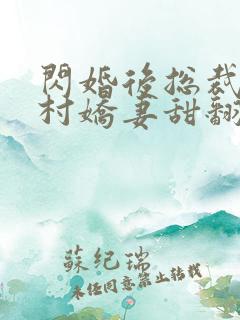 閃婚後總裁
村嬌妻甜翻
蘇紀瑞
未经同意禁止转载